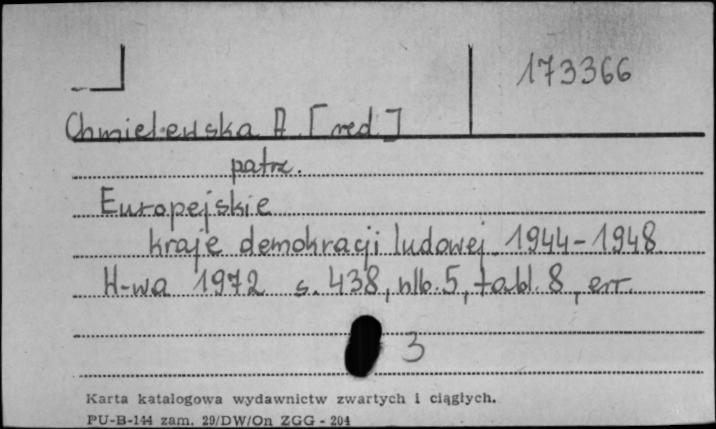 173366
Chmielewska A. [red.]
patrz.
Europejskie
kraje demokracji ludowej. 1944-1948
W-wa 1972 s. 438, nlb. 5, tabl. 8, err.
3
Karta katalogowa wydawnictw zwartych i ciągłych.
PU-B-144 zam. 29/DW/On ZGG - 204